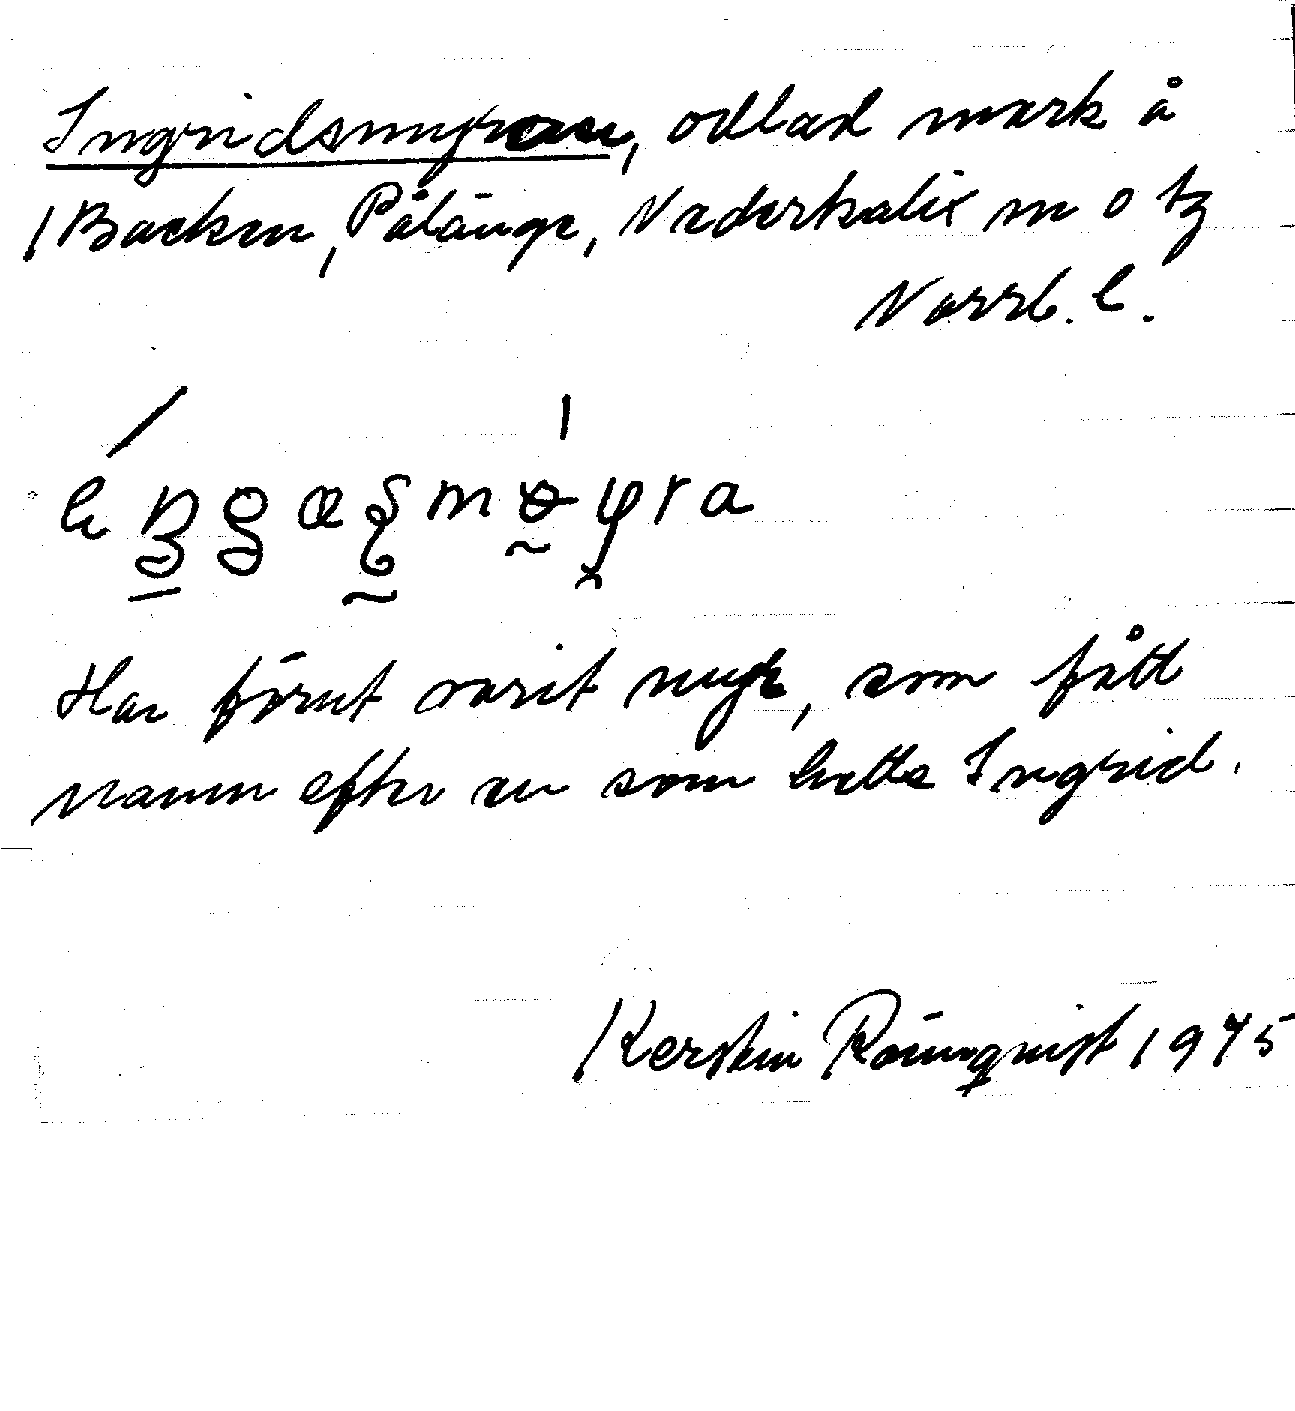 Ingridsmyran, odlad mark å
Backen, Pålänge, Nederkalix sn o tg
Norrb. l.
Har förut varit myr, som fått
namn efter en som hette Ingrid.
Kerstin Rönnqvist 1975